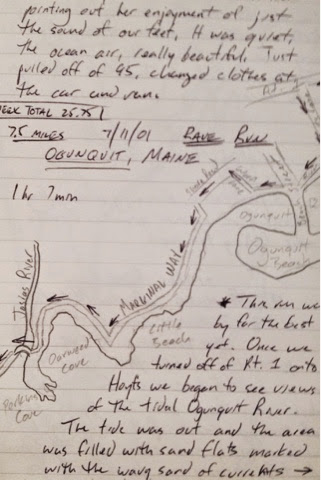 pointing out her enjoyment of just
the sound of our feet. It was quiet,
the ocean air, really beautiful. Just
pulled off of 95, changed clothes at
the car and ran.
WEEK TOTAL 25.75
7.5 MILES 7/11/01 RAVE RUN
OGUNQUIT, MAINE
1 hr 7 min
Shore Road
Ogunquit
Ogunquit
Beach
MARGINAL WAY
Josias River
Little
Beach
Oarweed
Cove
Perkins
Cove
* This run was
by far the best
yet. Once we
turned off of Rt. 1 onto
Hoyts we began to see views
of the tidal Ogunquit River.
The tide was out and the area
was filled with sand flats marked
with the wavy sand of currents →